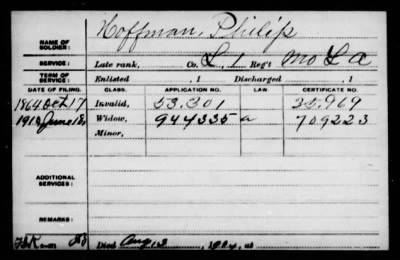 NAME OF SOLDIER: Hoffman, Philip
SERVICE: Late rank, Co. L, 1 Reg't Mo L A
TERM OF SERVICE: Enlisted , 1 Discharged , 1
DATE OF FILING. CLASS. APPLICATION NO. LAW. CERTIFICATE NO.
1864 Oct 17 Invalid, 53.301 35.969
1910 June 18, Widow, 944335 a 709223
Minor,
ADDITIONAL SERVICES:
REMARKS:
Died Aug